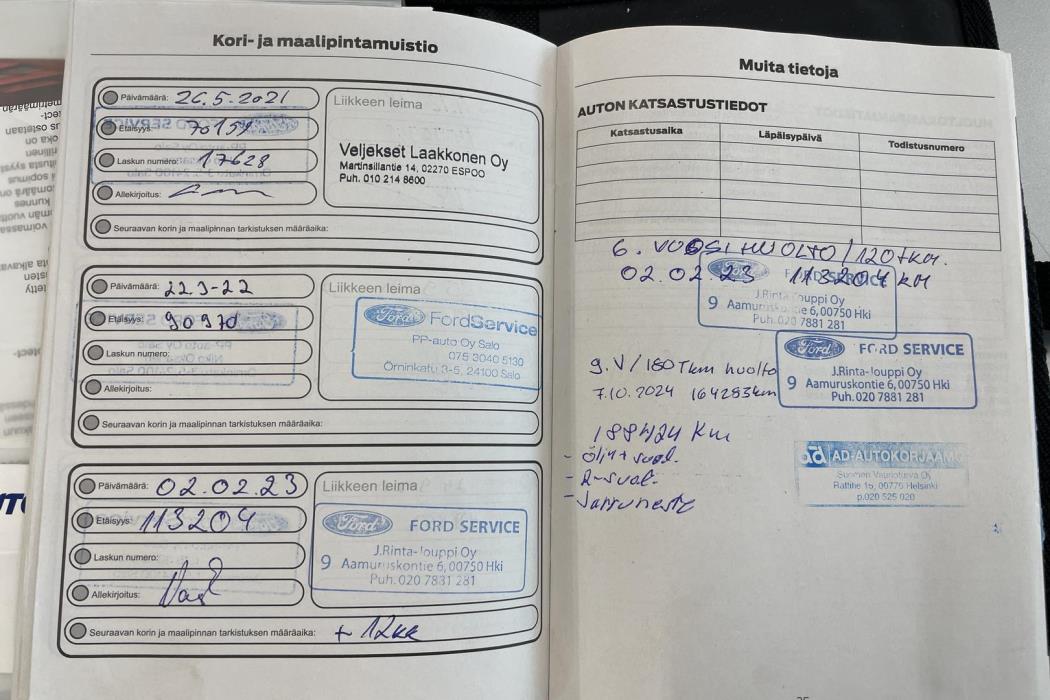 Kori- ja maalipintamuistio
Päivämäärä: 26.5.2021
Etäisyys: 70159
Laskun numero: 17628
Allekirjoitus:
Seuraavan korin ja maalipinnan tarkistuksen määräaika:
Liikkeen leima
Veljekset Laakkonen Oy
Martinsillantie 14, 02270 ESPOO
Puh. 010 214 8600
Päivämäärä: 22.3-22
Etäisyys: 90970
Laskun numero:
Allekirjoitus:
Seuraavan korin ja maalipinnan tarkistuksen määräaika:
Liikkeen leima
Ford FordService
PP-auto Oy Salo
075 3040 5130
Örninkatu 3-5, 24100 Salo
Päivämäärä: 02.02.23
Etäisyys: 113204
Laskun numero:
Allekirjoitus:
Seuraavan korin ja maalipinnan tarkistuksen määräaika: + 12kk
Liikkeen leima
Ford FORD SERVICE
J.Rinta-Jouppi Oy
9 Aamuruskontie 6, 00750 Hki
Puh. 020 7881 281
Muita tietoja
AUTON KATSASTUSTIEDOT
Katsastusaika Läpäisypäivä Todistusnumero
6. VUOSIHUOLTO / 120 tkm.
02.02.23 113204 km
Ford
J.Rinta-Jouppi Oy
9 Aamuruskontie 6, 00750 Hki
Puh. 020 7881 281
Ford FORD SERVICE
J.Rinta-Jouppi Oy
9 Aamuruskontie 6, 00750 Hki
Puh. 020 7881 281
9. V / 180 Tkm huolto
7.10.2024 164283km
188424 km
- Öljy + suod.
- R-suod.
- Jarruneste
ad AD-AUTOKORJAAMO
Suomen Vaurioturva Oy
Rattitie 15, 00770 Helsinki
p.020 525 020